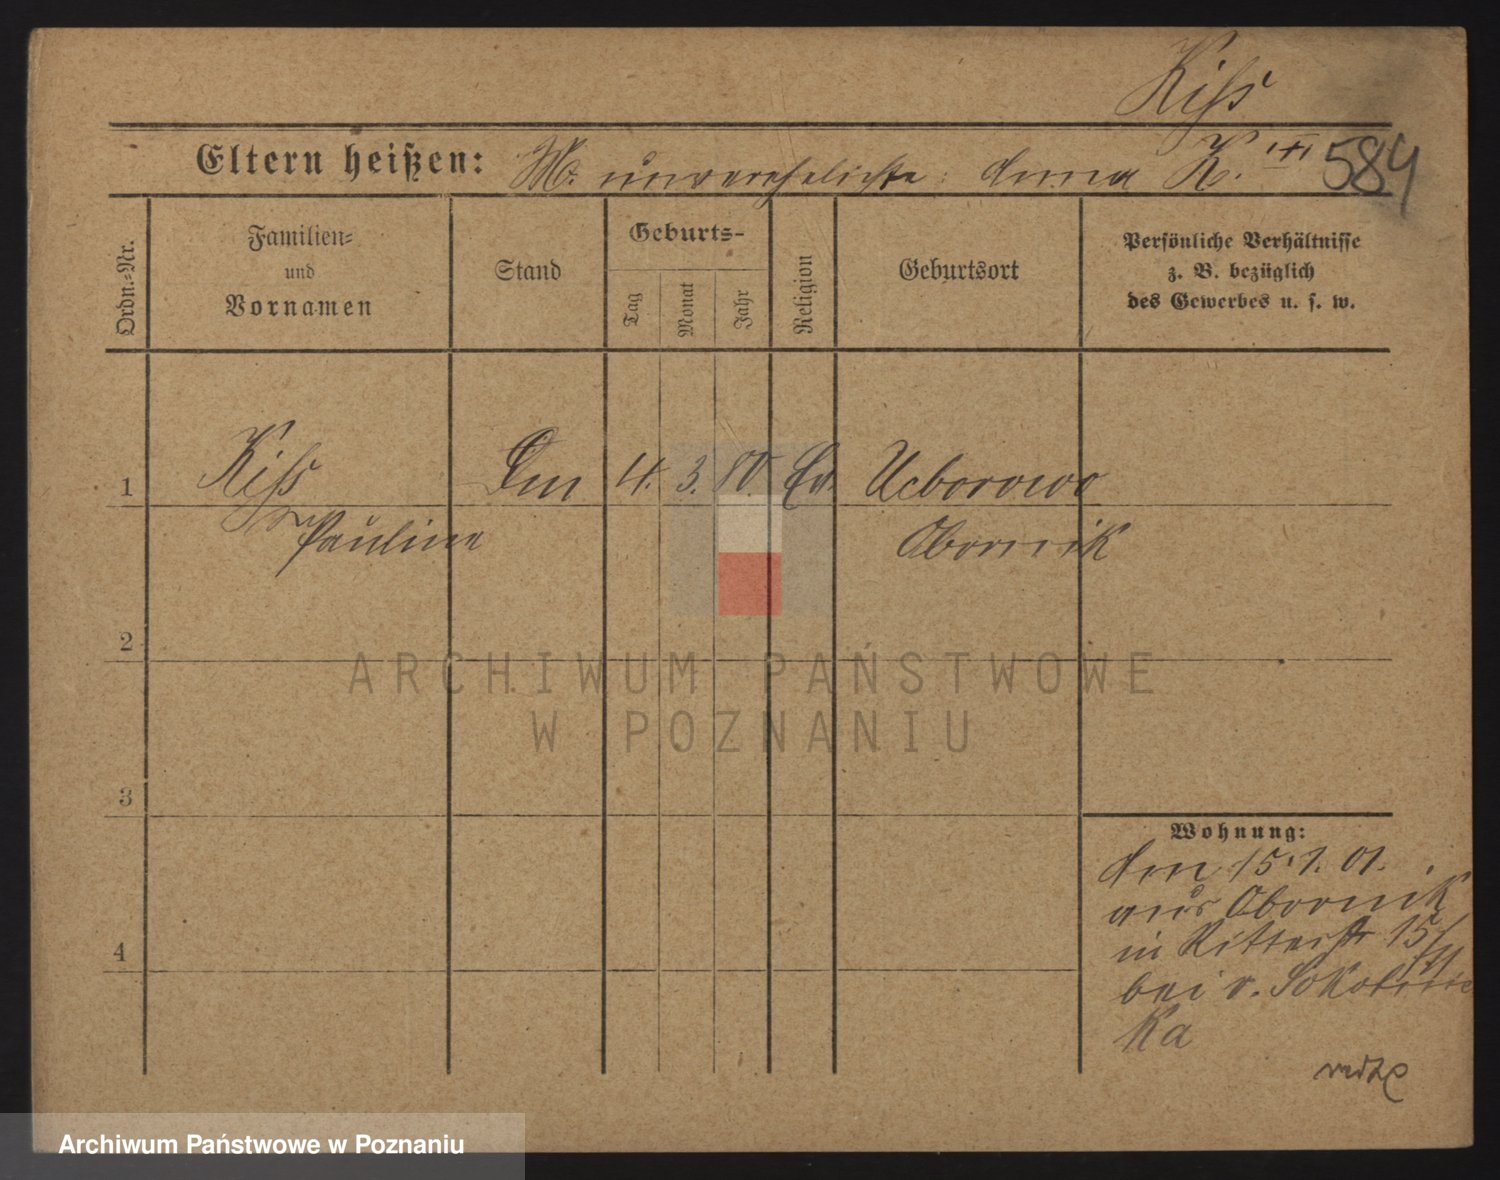 Kiss
Eltern heißen: M. unverehelichte: Anna K. 584
Ordn.-Nr.
Familien-
und
Vornamen
Stand
Geburts-
Tag
Monat
Jahr
Religion
Geburtsort
Persönliche Verhältnisse
z. B. bezüglich
des Gewerbes u. s. w.
1 Kiss 4. 3. 80 Ev. Ucborowo
Pauline Obornik
2
3
4
Wohnung:
den 15.1.01.
aus Obornik
in Ritterstr 15/
bei v. Sokolnic
Ka
ARCHIWUM PAŃSTWOWE
W POZNANIU
Archiwum Państwowe w Poznaniu